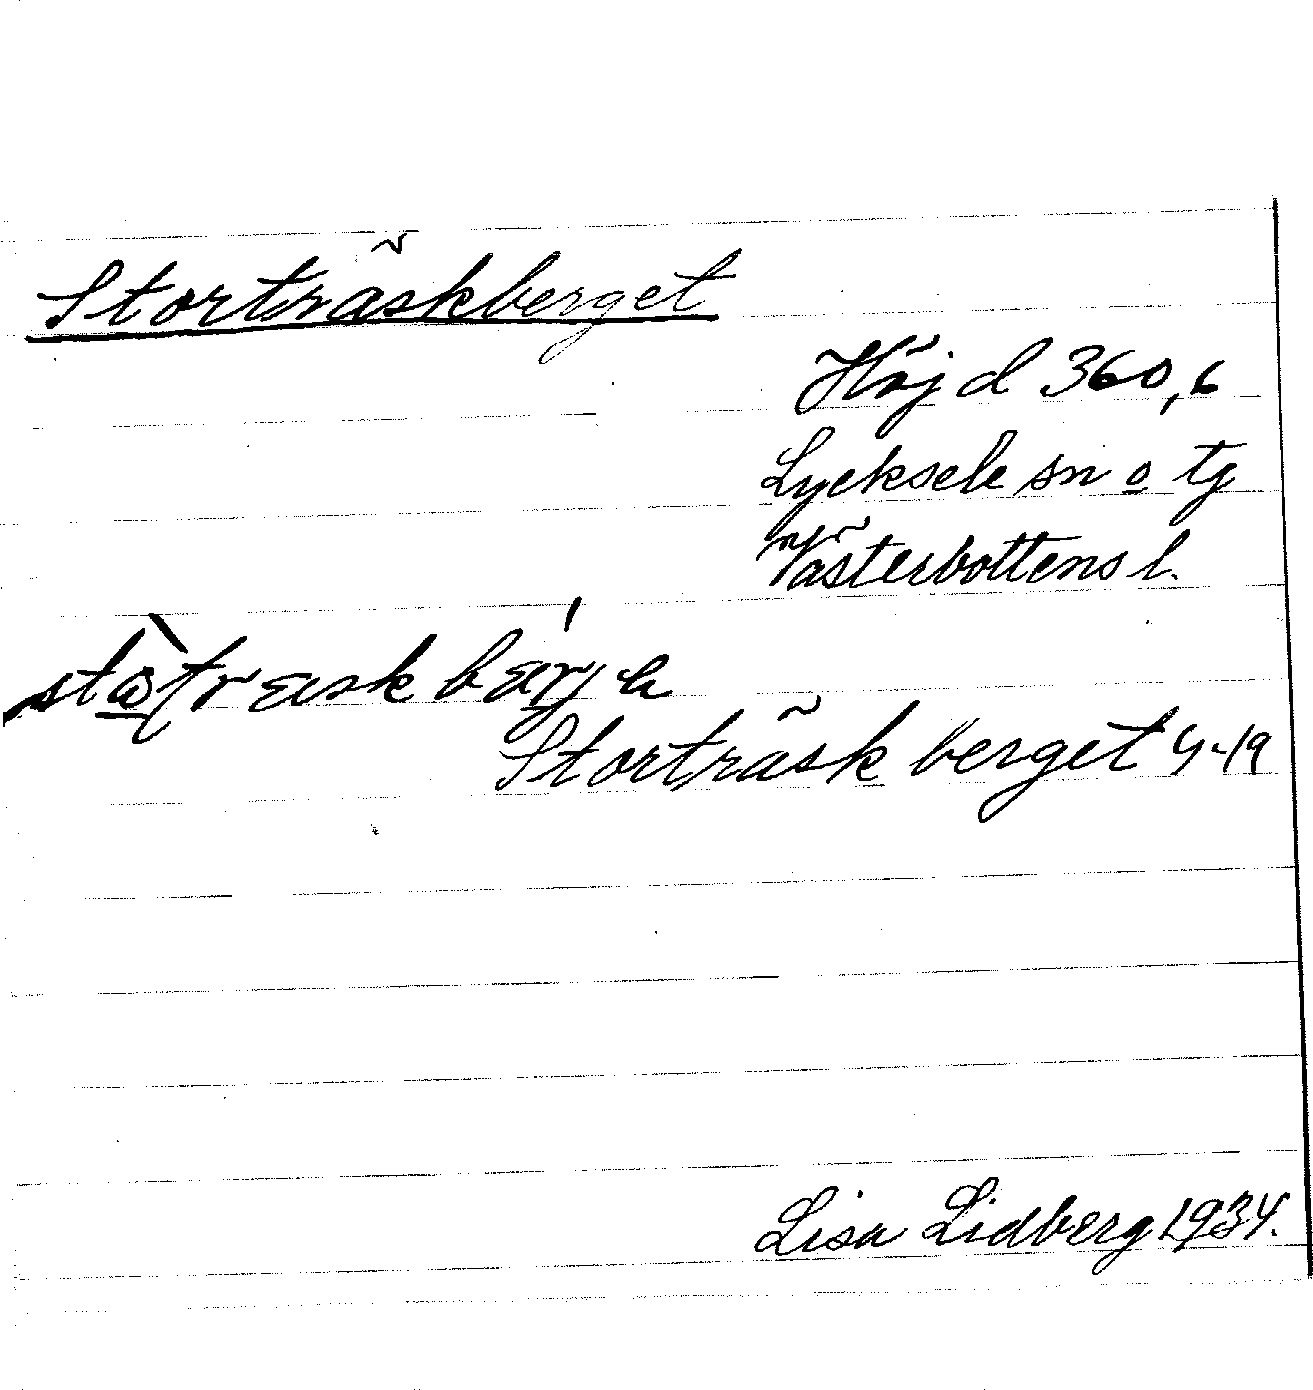 Storträskberget
Höjd 360,6
Lycksele sn o tg
Västerbottens l.
Storträskberget
Lisa Lidberg 1934.